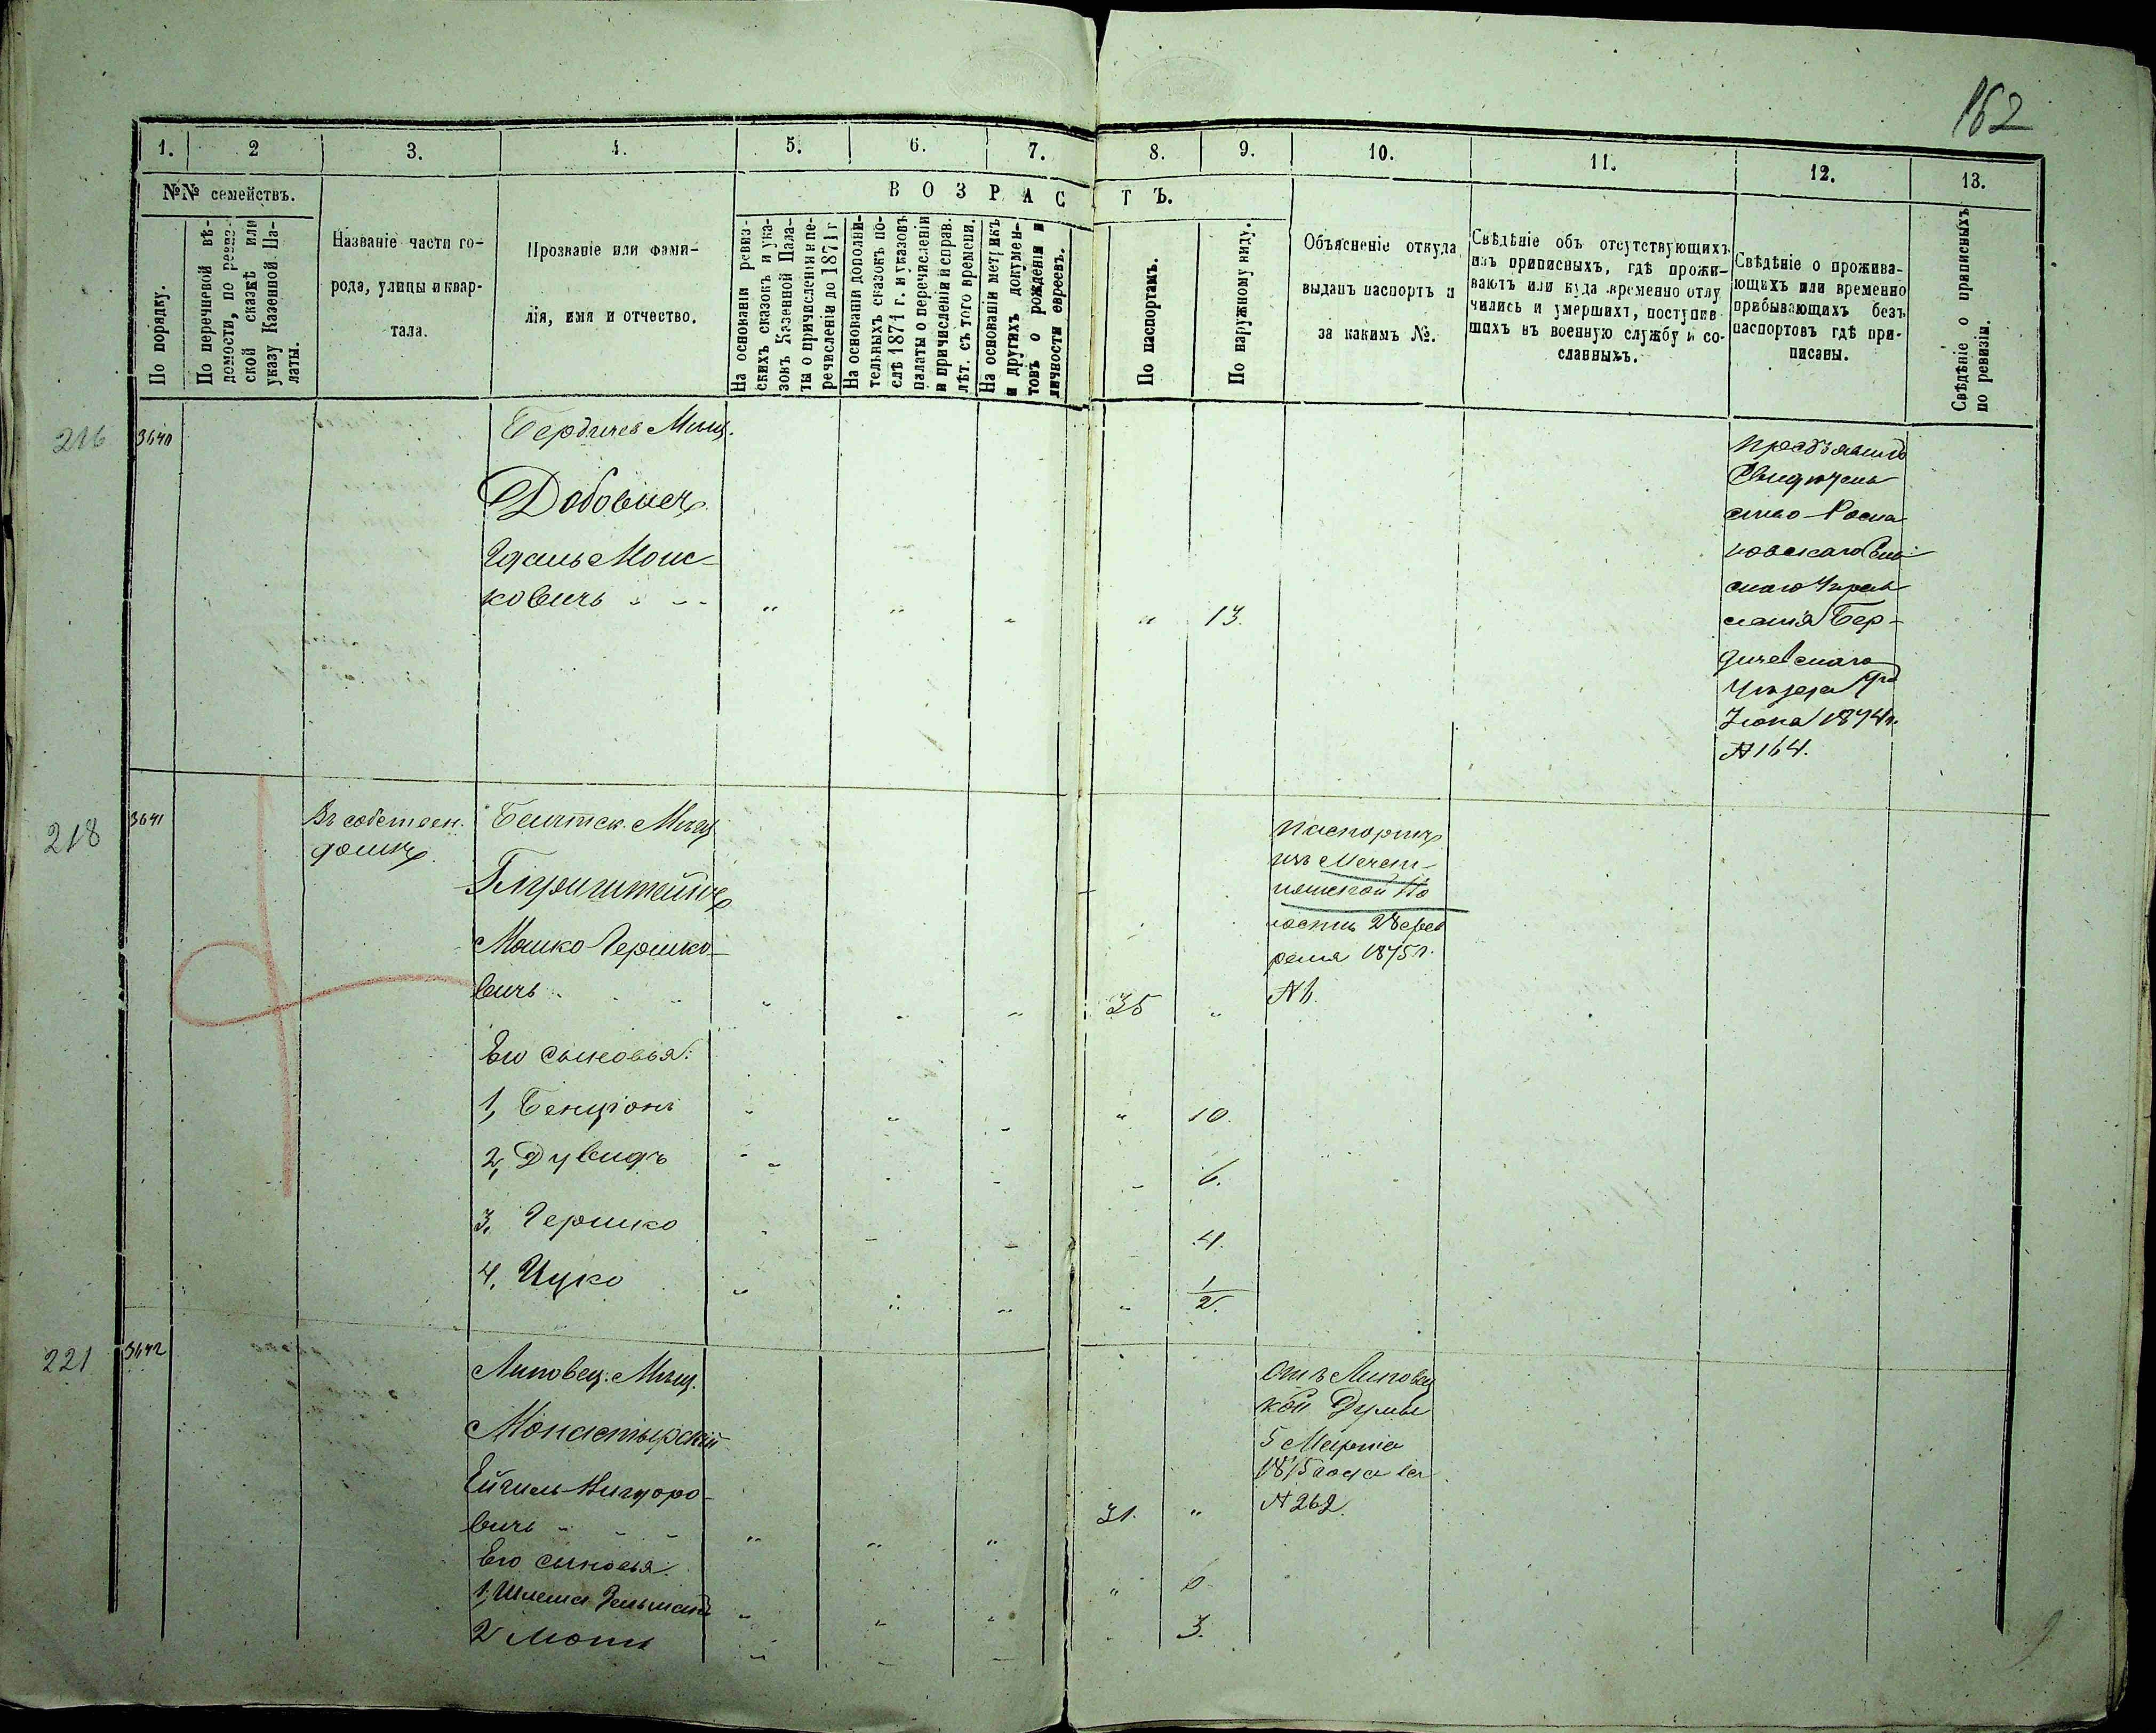 162
1.
2
3.
4.
5.
6.
7.
8.
9.
10.
11.
12.
13.
№№ семействъ.
ВОЗРАСТЪ.
По порядку.
По перечневой вѣ-
домости, по ревиз-
ской сказкѣ или
указу Казенной Па-
латы.
Названіе части го-
рода, улицы и квар-
тала.
Прозваніе или фами-
лія, имя и отчество.
На основаніи ревиз-
скихъ сказокъ и ука-
зовъ Казенной Пала-
ты о причисленіи и пе-
речисленіи до 1871 г
На основаніи дополни-
тельныхъ сказокъ по-
слѣ 1871 г. и указовъ
палаты о перечисленіи
и причисленіи и справ.
лѣт. съ того времени.
На основаніи метрикъ
и другихъ докумен-
товъ о рожденіи и
личности евреевъ.
По паспортамъ.
По наружному виду.
Объясненіе откуда
выданъ паспортъ и
за какимъ №.
Свѣдѣніе объ отсутствующихъ
изъ приписныхъ, гдѣ прожи-
ваютъ или куда временно отлу
чились и умершихъ, поступив-
шихъ въ военную службу и со-
сланныхъ.
Свѣдѣніе о прожива-
ющихъ или временно
прибывающихъ безъ
паспортовъ гдѣ при-
писаны.
Свѣдѣніе о приписныхъ
по ревизіи.
216
3640
Бердичев Мѣщ.
Добовичъ
Гдаль Мош-
ковичъ
13.
Предъявилъ
Свидѣтель
ство
Управ
ленія Бер-
дичевскаго
Уѣзда
Іюня 1874 г.
№ 164.
218
3641
Въ собствен.
домѣ
Балтск. Мѣщ
Блуминштейнъ
Мошко Гершко-
вичъ
35
Паспортъ
изъ
1875 г.
№
Его сыновья:
1, Бенціонъ
10.
2, Дувидъ
6.
3, Гершко
4.
4, Ицко
1/2.
221
3642
Липовец. Мѣщ.
Монастырскій
вичъ
31.
Отъ Липовец
кой Думы
5 Марта
1875 года за
№ 262.
Его сыновья:
1, Шлема Зельманъ
6
2 Моти
3.